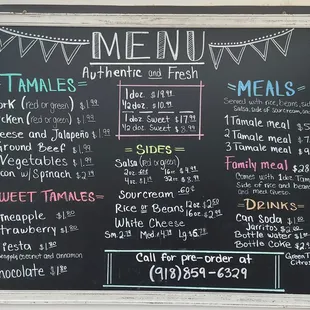 MENU
Authentic and Fresh
TAMALES
ork (red or green) $1.99
icken (red or green) $1.99
eese and Jalapeño $1.99
Ground Beef $1.99
Vegetables $1.99
con w/Spinach $2
WEET TAMALES
neapple $1.80
trawberry $1.80
iesta $1.80
coconut and cinnamon
hocolate $1.80
1 doz. $19.99
1/2 doz. $10.99
1 doz. Sweet $17.99
1/2 doz. Sweet $8.99
SIDES
Salsa (red or green)
Sourcream
Rice or Beans 12oz $2.50
16oz $2.99
White Cheese
Sm. Med. Lg.
Call for pre-order at
(918)859-6329
MEALS
Served with rice, beans, sid
Salsa, side of sourcream, sau
1 Tamale meal $5
2 Tamale meal $7
3 Tamale meal $9
Family meal $28
Comes with 1 doz Tam
Side of rice and bean
and med queso.
DRINKS
Can Soda $1
Jarritos $2
Bottle water $1
Bottle Coke $2
Green T
Citrus